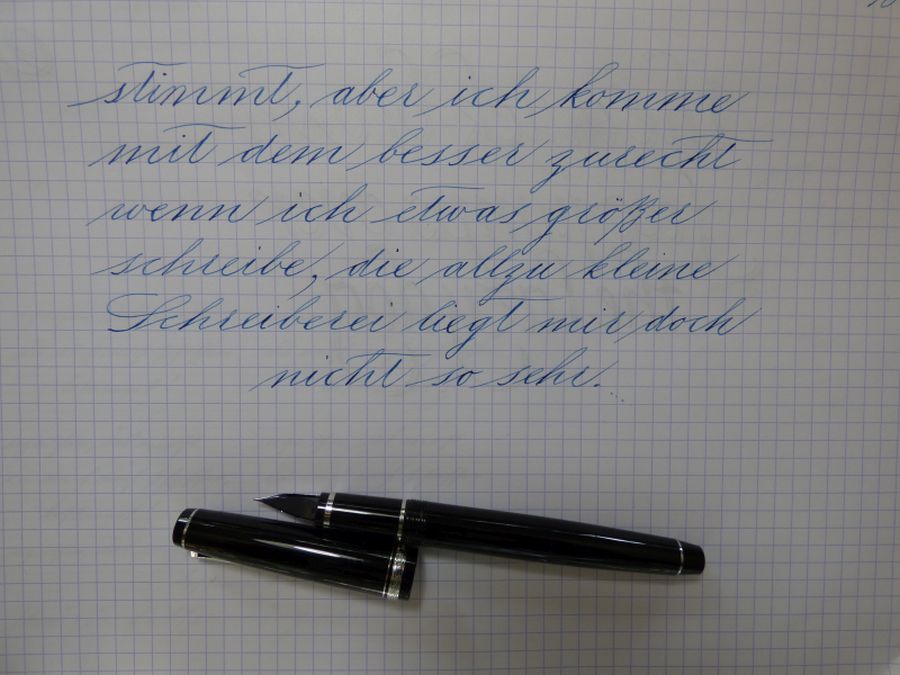 stimmt, aber ich komme
mit dem besser zurecht
wenn ich etwas größer
schreibe, die allzu kleine
Schreiberei liegt mir doch
nicht so sehr.